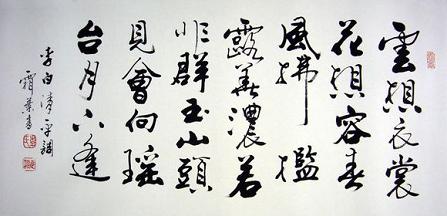 雲想衣裳
花想容春
風拂檻
露華濃若
非群玉山頭
見會向瑤
台月下逢
李白清平調